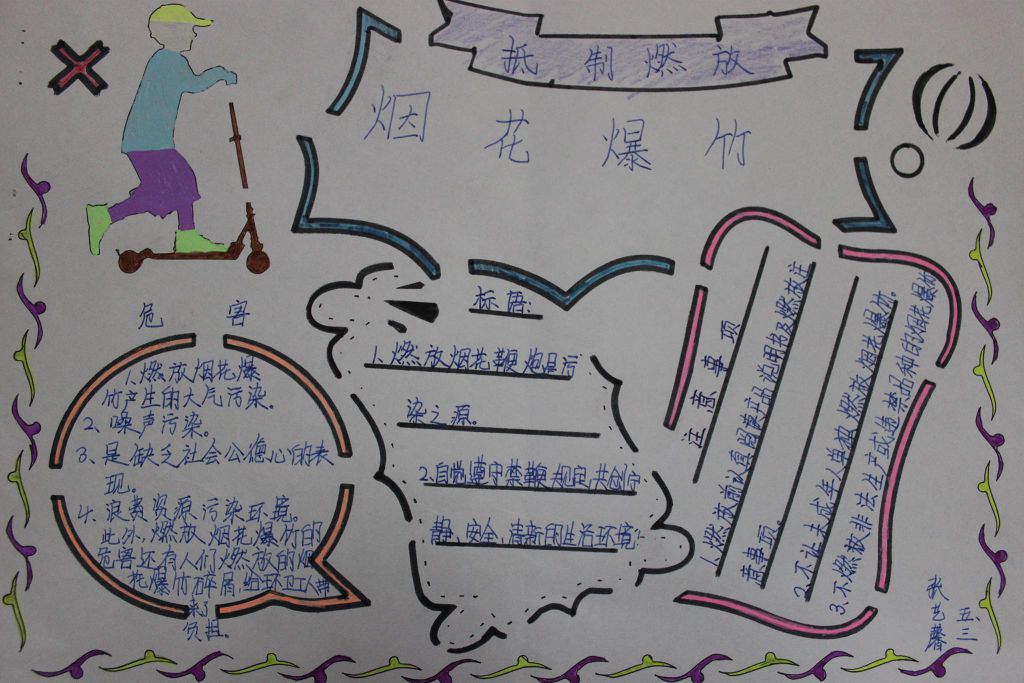 抵制燃放
烟花爆竹
危害
1.燃放烟花爆
竹产生的大气污染。
2、噪声污染。
3、是缺乏社会公德心的表
现。
4.浪费资源污染环境。
此外,燃放烟花爆竹的
危害还有人们燃放的烟
花爆竹碎屑,给环卫工人带
来了
负担。
标语:
1.燃放烟花鞭炮是污
染之源。
2.自觉遵守禁鞭规定,共创宁
静、安全、清新的生活环境
注意事项
1.燃放前认真阅读产品说明书及燃放注
意事项。
2.不让未成年人单独燃放烟花爆竹。
3.不燃放非法生产或违禁品种的烟花爆竹
五、三
张艺馨